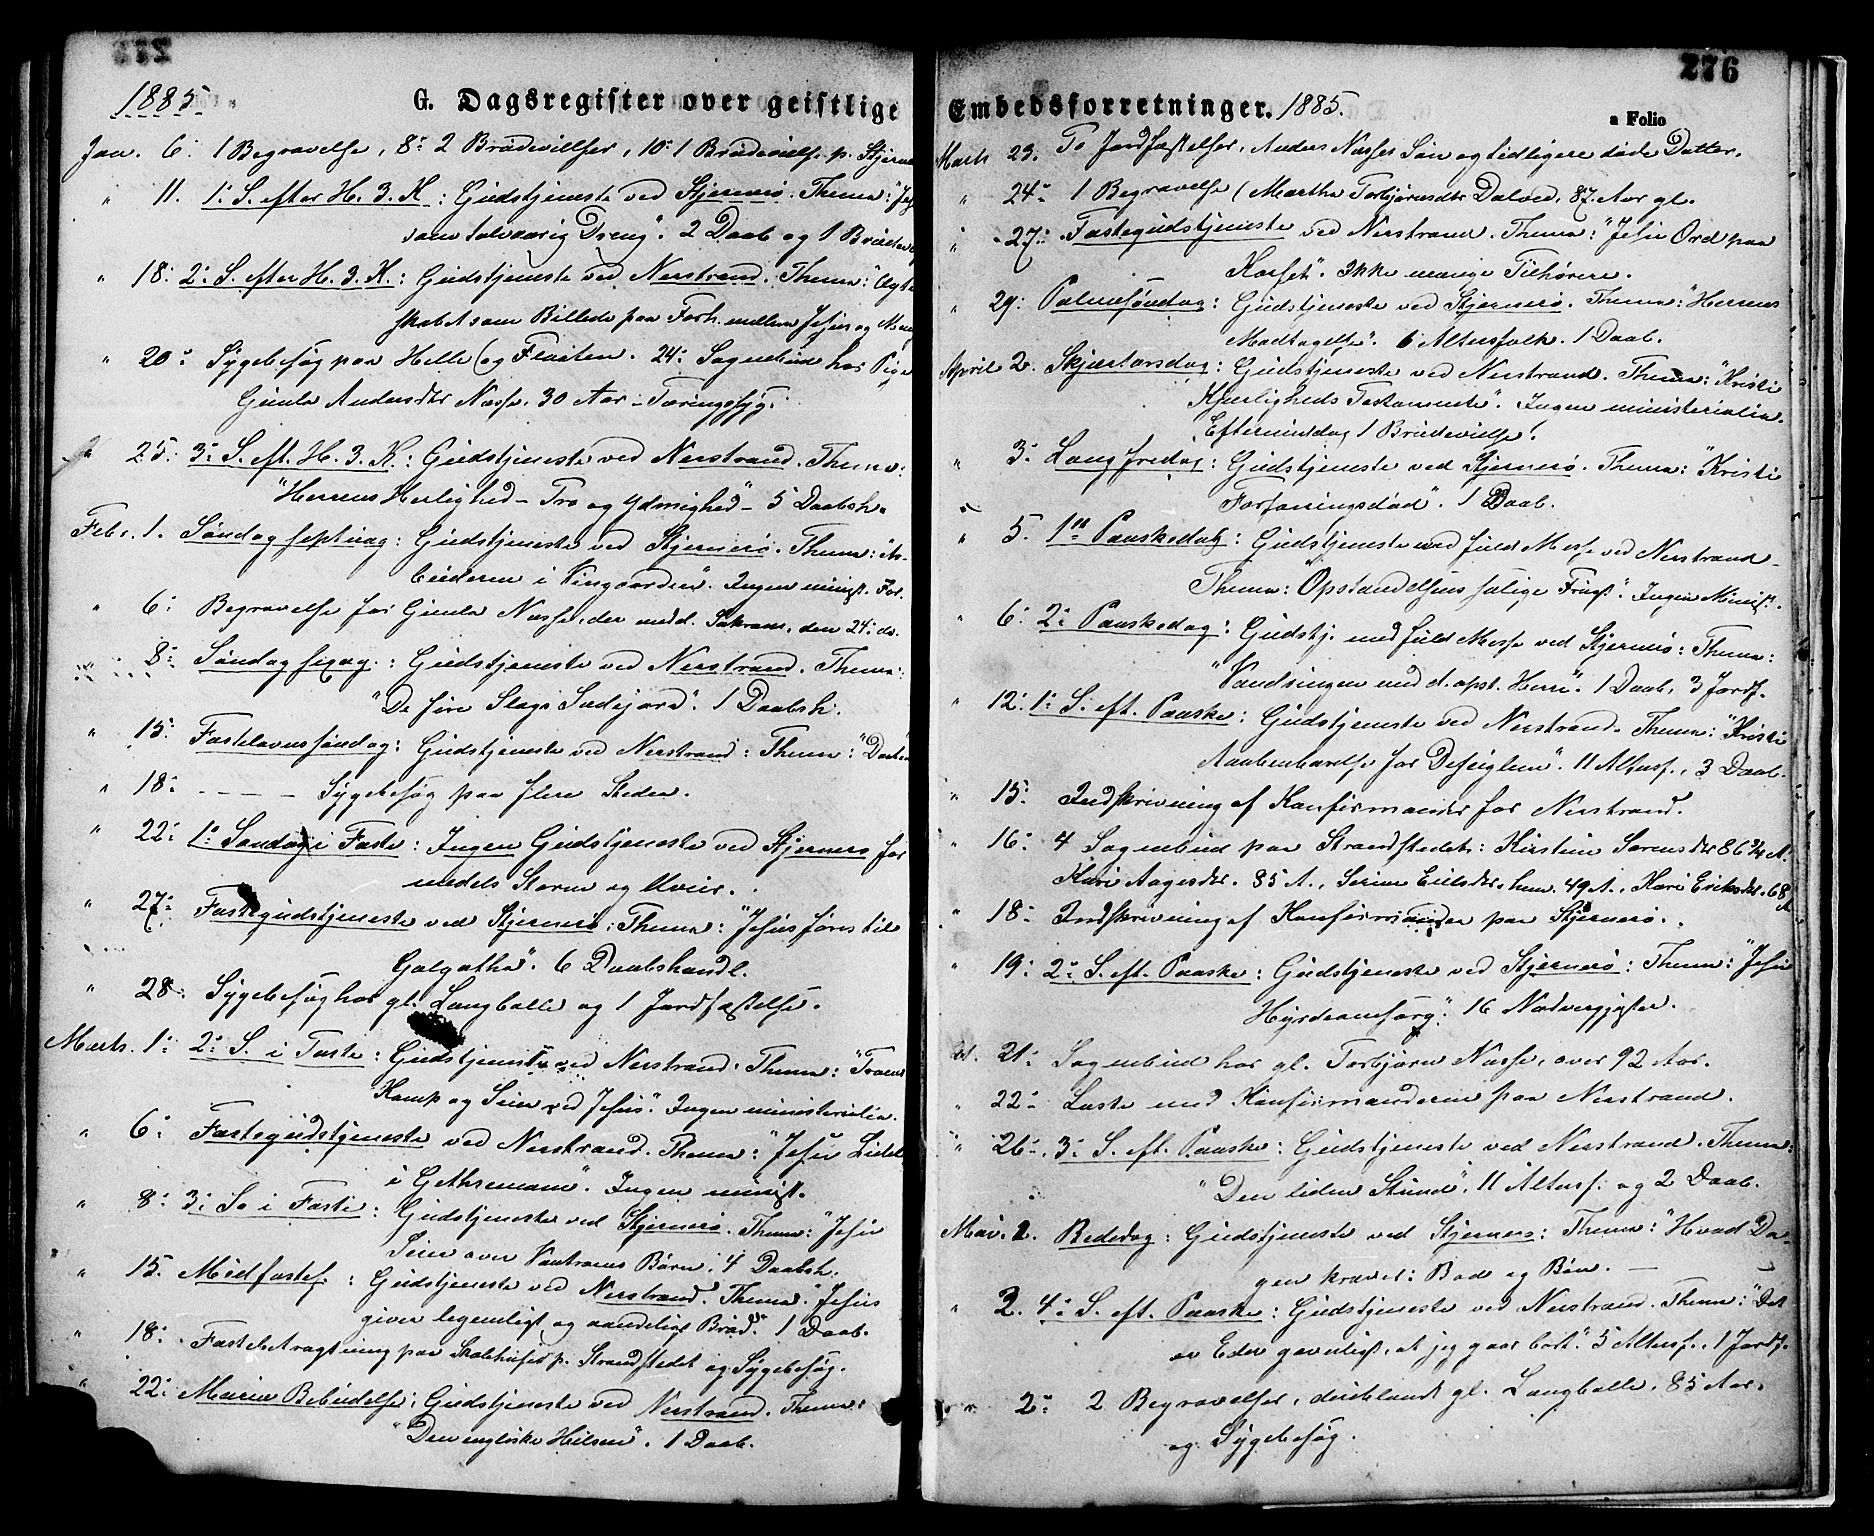 1885
G. Dagsregister over geistlige
Jan. 6: 1 Begravelse, 8: 2 Brudevielser, 10: 1 Brudevielse p. Stjerne
" 11. 1: S. efter H. 3. K: Gudstjeneste ved Stjernerø. Thema: "Jes
som tolvaarig Dreng". 2 Daab og 1 Brudevie
" 18: 2: S. efter H. 3. K.: Gudstjeneste ved Nerstrand. Thema: "Egte
skabet som Billede paa Forh. mellem Jesus og Men
" 20: Sygebesøg paa Helle (og Flaaten. 24: Sognebud hos Pige
Gunla Andersdtr Næsse. 30 Aar - Tæringssyg.
" 25: 3: S. eft. H. 3. K.: Gudstjeneste ved Nerstrand. Thema:
"Herrens Herlighed - Tro og Ydmighed" - 5 Daabsh.
Febr. 1. Søndag septuag: Gudstjeneste ved Stjernerø. Thema: "Ar-
beiderne i Vingaarden". Ingen minist. For.
" 6: Begravelse for Gunla Næsse, der medd. Sakram. den 24: ds.
8: Søndag sexag.: Gudstjeneste ved Nerstrand. Thema:
"De fire Slags Sædejord". 1 Daabsh.
" 15: Fastelavnssøndag: Gudstjeneste ved Nerstrand: Thema: "Daaben
" 18: - - - Sygebesøg paa flere Steder.
" 22: 1: Søndag i Faste: Ingen Gudstjeneste ved Stjernerø for
medels Storm og Uveir.
" 27: Fastegudstjeneste ved Stjernerø: Thema: "Jesus føres til
Golgatha". 6 Daabshandl.
" 28: Sygebesøg hos gl. Langballe og 1 Jordfæstelse.
Marts. 1: 2: S. i Faste: Gudstjeneste ved Nerstrand. Thema: "Troens
Kamp og Seier ved Jesus". Ingen ministerialia.
" 6: Fastegudstjeneste ved Nerstrand. Thema: "Jesu Lidel
i Gethsemane". Ingen minist.
" 8: 3: S. i Faste: Gudstjeneste ved Stjernerø. Thema: "Jesu
Seier over Vantroens Børn: 4 Daabsh.
" 15. Midfastes.: Gudstjeneste ved Nerstrand. Thema: "Jesus
giver legemligt og aandeligt Brød". 1 Daab.
" 18: Fastebetragtning paa Skolehuset p. Strandstedet og Sygebesøg.
" 22: Mariæ Bebudelse: Gudstjeneste ved Nerstrand. Thema:
"Den engliske Hilsen". 1 Daab.
276
Embedsforretninger. 1885.
a Folio
Marts 23. To Jordfæstelser, Anders Næsses Søn og tidligere døde Datter.
" 24: 1 Begravelse (Martha Torbjørnsdtr Dalved, 87 Aar gl.
" 27: Fastegudstjeneste ved Nerstrand. Thema: "Jesu Ord paa
Korset". Ikke mange Tilhørere.
" 29: Palmesøndag: Gudstjeneste ved Stjernerø. Thema: "Herrens
Modtagelse". 6 Altersfolk. 1 Daab.
April 2. Skjærtorsdag: Gudstjeneste ved Nerstrand. Thema: "Kristi
Kjærligheds Testamente". Ingen ministerialia.
Eftermiddag 1 Brudevielse.
" 3: Langfredag: Gudstjeneste ved Stjernerø. Thema: "Kristi
Forsoningsdød". 1 Daab.
" 5. 1ste Paaskedag: Gudstjeneste med fuld Messe ved Nerstrand -
Thema: "Opstandelsens salige Frugt". Ingen Minist.
" 6: 2: Paaskedag: Gudstj. med fuld Messe ved Stjernerø: Thema:
"Vandringen med d. opst. Herre". 1 Daab, 3 Jordf.
" 12: 1: S. eft. Paaske: Gudstjeneste ved Nerstrand. Thema: "Kristi
Aabenbarelse for Desciplene". 11 Altersf., 3 Daab.
" 15: Indskrivning af Konfirmander for Nerstrand.
" 16: 4 Sognebud paa Strandstedet: Kirstine Sørensdtr 86 3/4 A.
Kari Aagesdtr. 85 A., Serine Eilsdtr. hem. 49 A., Kari Eriksdtr. 68 A.
" 18: Indskrivning af Konfirmander paa Stjernerø.
" 19: 2: S. eft. Paaske: Gudstjeneste ved Stjernerø: Thema: "Jesu
Hyrdeomsorg". 16 Nadvergjæster.
21: Sognebud hos gl. Torbjørn Næsse, over 92 Aar.
" 22: Læste med Konfirmanderne paa Nerstrand.
" 26: 3: S. eft. Paaske: Gudstjeneste ved Nerstrand. Thema:
"Den liden Stund". 11 Altersf. og 2 Daab.
Mai. 1. Bededag: Gudstjeneste ved Stjernerø: Thema: "Hvad Da-
gen kræver: Bod og Bøn. -
" 3. 4: S. eft. Paaske: Gudstjeneste ved Nerstrand. Thema: "Det
er Eder gavnligt, at jeg gaar bort". 5 Altersf. 1 Jordf.
" 2: 2 Begravelser, deriblandt gl. Langballe. 85 Aar.
og Sygebesøg.